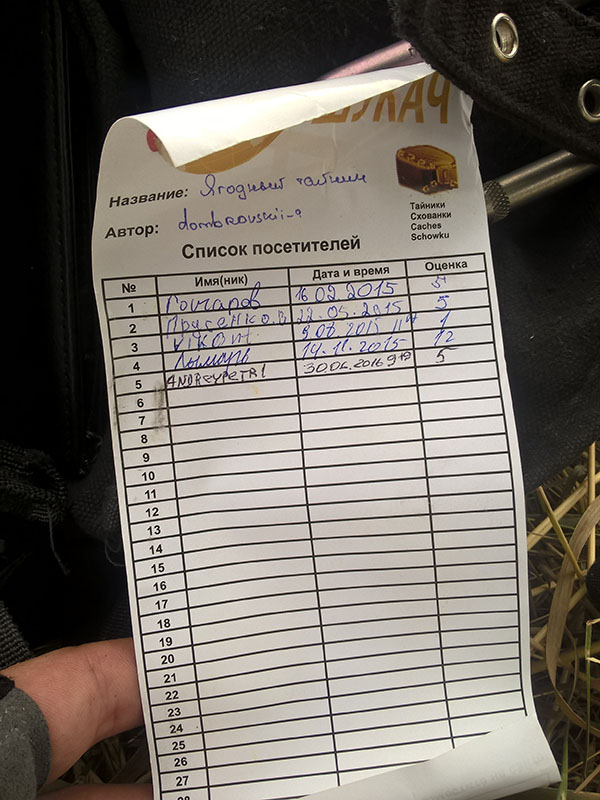 ШУКАЧ
Название: Ягодный тайник
Автор: dombrovskii-a
Тайники
Схованки
Caches
Schowku
Список посетителей
№ Имя(ник) Дата и время Оценка
1 Гончаров 16.02.2015 5
2 22.05.2015 5
3
4 Лымарь 14.11.2015 12
5 ANDREYPETRI 30.04.2016 5
6
7
8
9
10
11
12
13
14
15
16
17
18
19
20
21
22
23
24
25
26
27
28